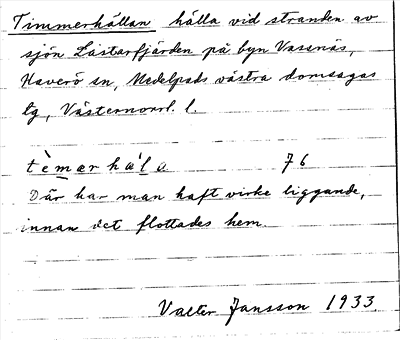 Timmerhällan hälla vid stranden av
sjön Lästarfjärden på byn Vassnäs,
Haverö sn, Medelpads västra domsagas
tg, Västernorrl. l.
tèmær haʹl a 76
Där har man haft virke liggande,
innan det flottades hem.
Valter Jansson 1933